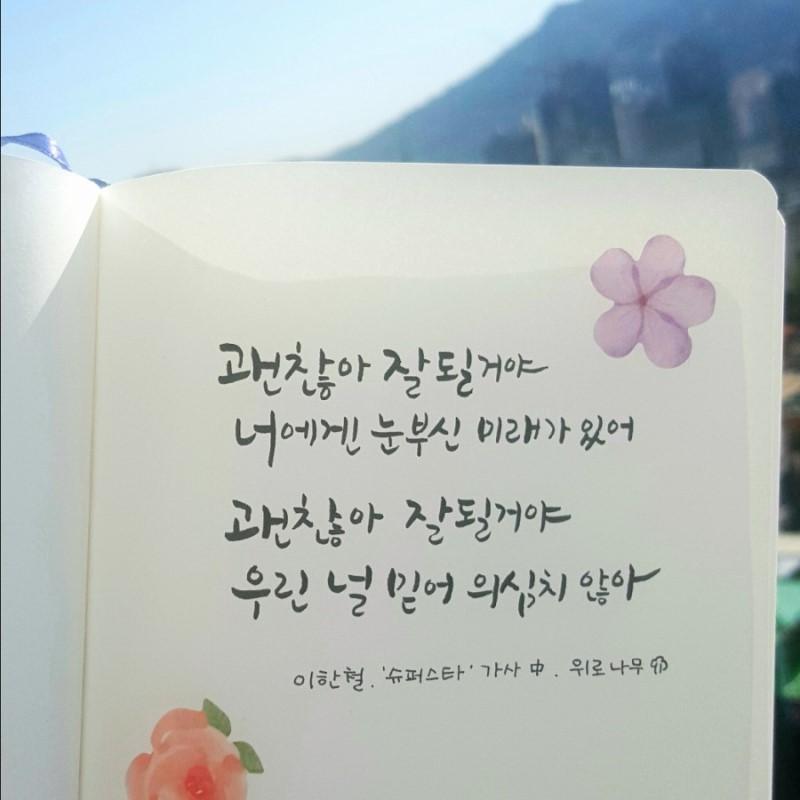 괜찮아 잘될거야
너에겐 눈부신 미래가 있어
괜찮아 잘될거야
우린 널 믿어 의심치 않아
이한철. '슈퍼스타' 가사 中. 위로나무